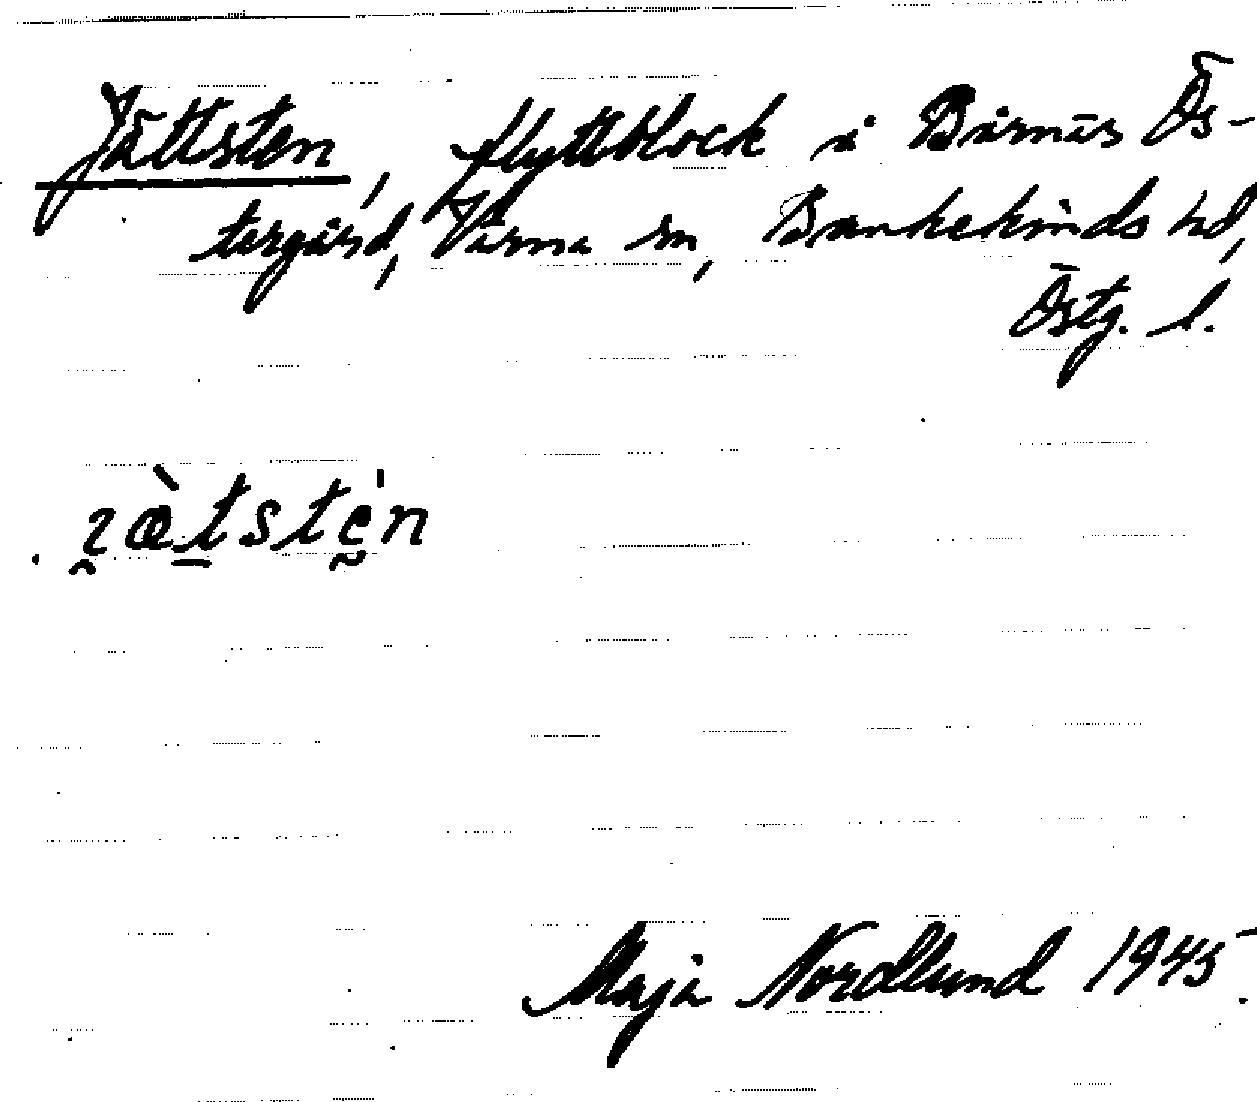 Jättsten, flyttblock i Bärnäs Ös-
tergård, Värna sn, Bankekinds hd,
Östg. l.
ɀæ̀tstḛ́n
Maja Nordlund 1945.